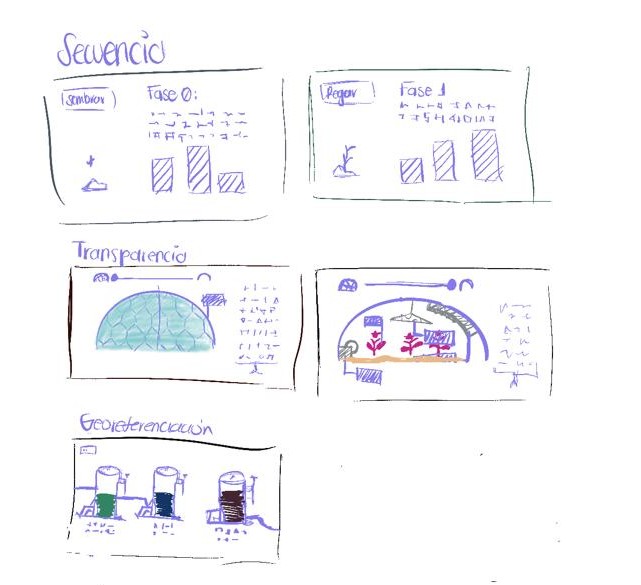 Secuencia
Sembrar
Fase 0:
Regar
Fase 1
Transparencia
Georeferenciación